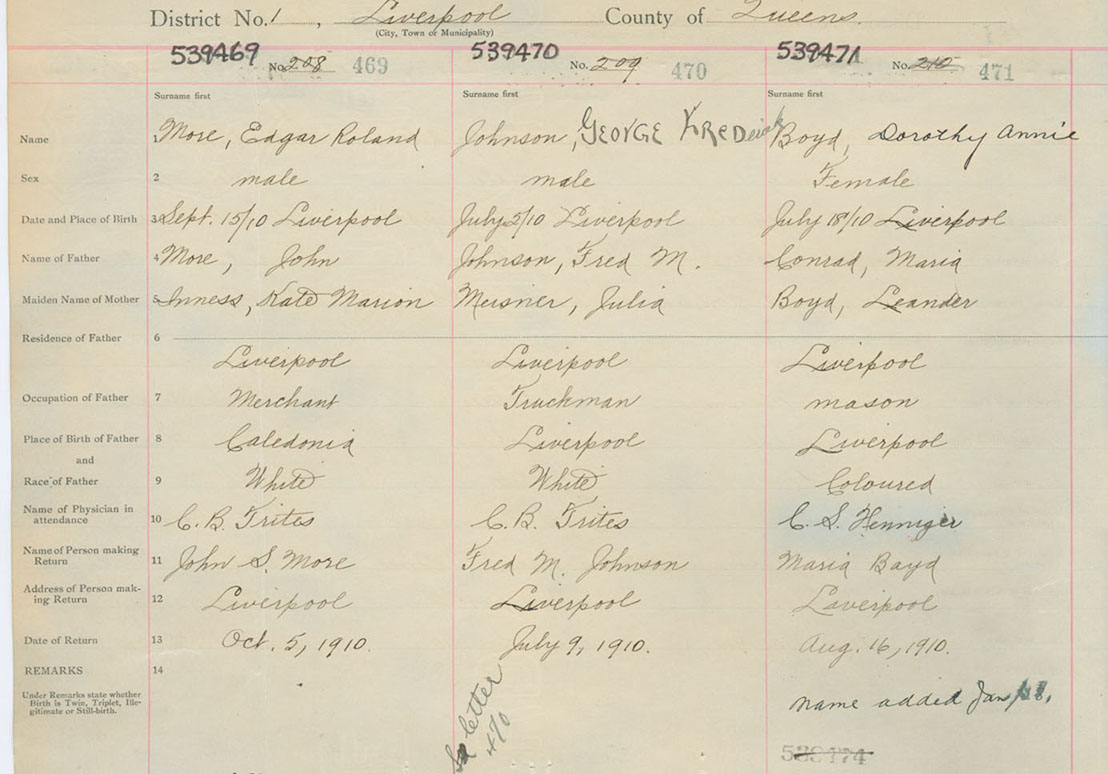 District No. 1, Liverpool County of Queens.
(City, Town or Municipality)
539469 539470 539471
No. 208 469 No. 209 470 No. 210 471
Surname first Surname first Surname first
Name 1 More, Edgar Roland Johnson, GEORGE FREDerick Boyd, Dorothy Annie
Sex 2 male male Female
Date and Place of Birth 3 Sept. 15/10 Liverpool July 5/10 Liverpool July 18/10 Liverpool
Name of Father 4 More, John Johnson, Fred M. Conrad, Maria
Maiden Name of Mother 5 Inness, Kate Marion Meisner, Julia Boyd, Leander
Residence of Father 6
Liverpool Liverpool Liverpool
Occupation of Father 7 Merchant Truckman mason
Place of Birth of Father 8 Caledonia Liverpool Liverpool
and
Race of Father 9 White White Coloured
Name of Physician in
attendance 10 C. B. Trites C. B. Trites C. S. Henniger
Name of Person making
Return 11 John S. More Fred M. Johnson Maria Boyd
Address of Person mak-
ing Return 12 Liverpool Liverpool Liverpool
Date of Return 13 Oct. 5, 1910. July 9, 1910. Aug. 16, 1910.
REMARKS 14
Under Remarks state whether
Birth is Twin, Triplet, Ille-
gitimate or Still-birth.
letter
470
name added Jan
539474